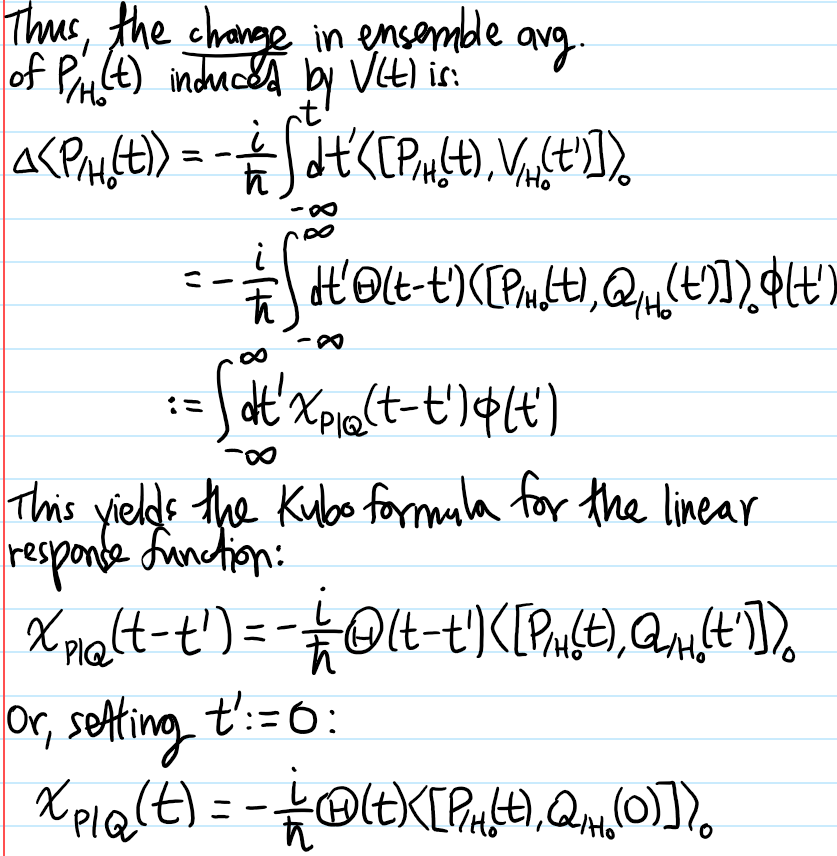 Thus, the change in ensemble avg.
of P/H₀(t) induced by V(t) is:
Δ⟨P/H₀(t)⟩ = -i/ħ ∫_{-∞}^{t} dt'⟨[P/H₀(t), V/H₀(t')]⟩₀
= -i/ħ ∫_{-∞}^{∞} dt'Θ(t-t')⟨[P/H₀(t), Q/H₀(t')]⟩₀ϕ(t')
:= ∫_{-∞}^{∞} dt'χ_{P|Q}(t-t')ϕ(t')
This yields the Kubo formula for the linear
response function:
χ_{P|Q}(t-t') = -i/ħ Θ(t-t')⟨[P/H₀(t), Q/H₀(t')]⟩₀
Or, setting t':=0:
χ_{P|Q}(t) = -i/ħ Θ(t)⟨[P/H₀(t), Q/H₀(0)]⟩₀